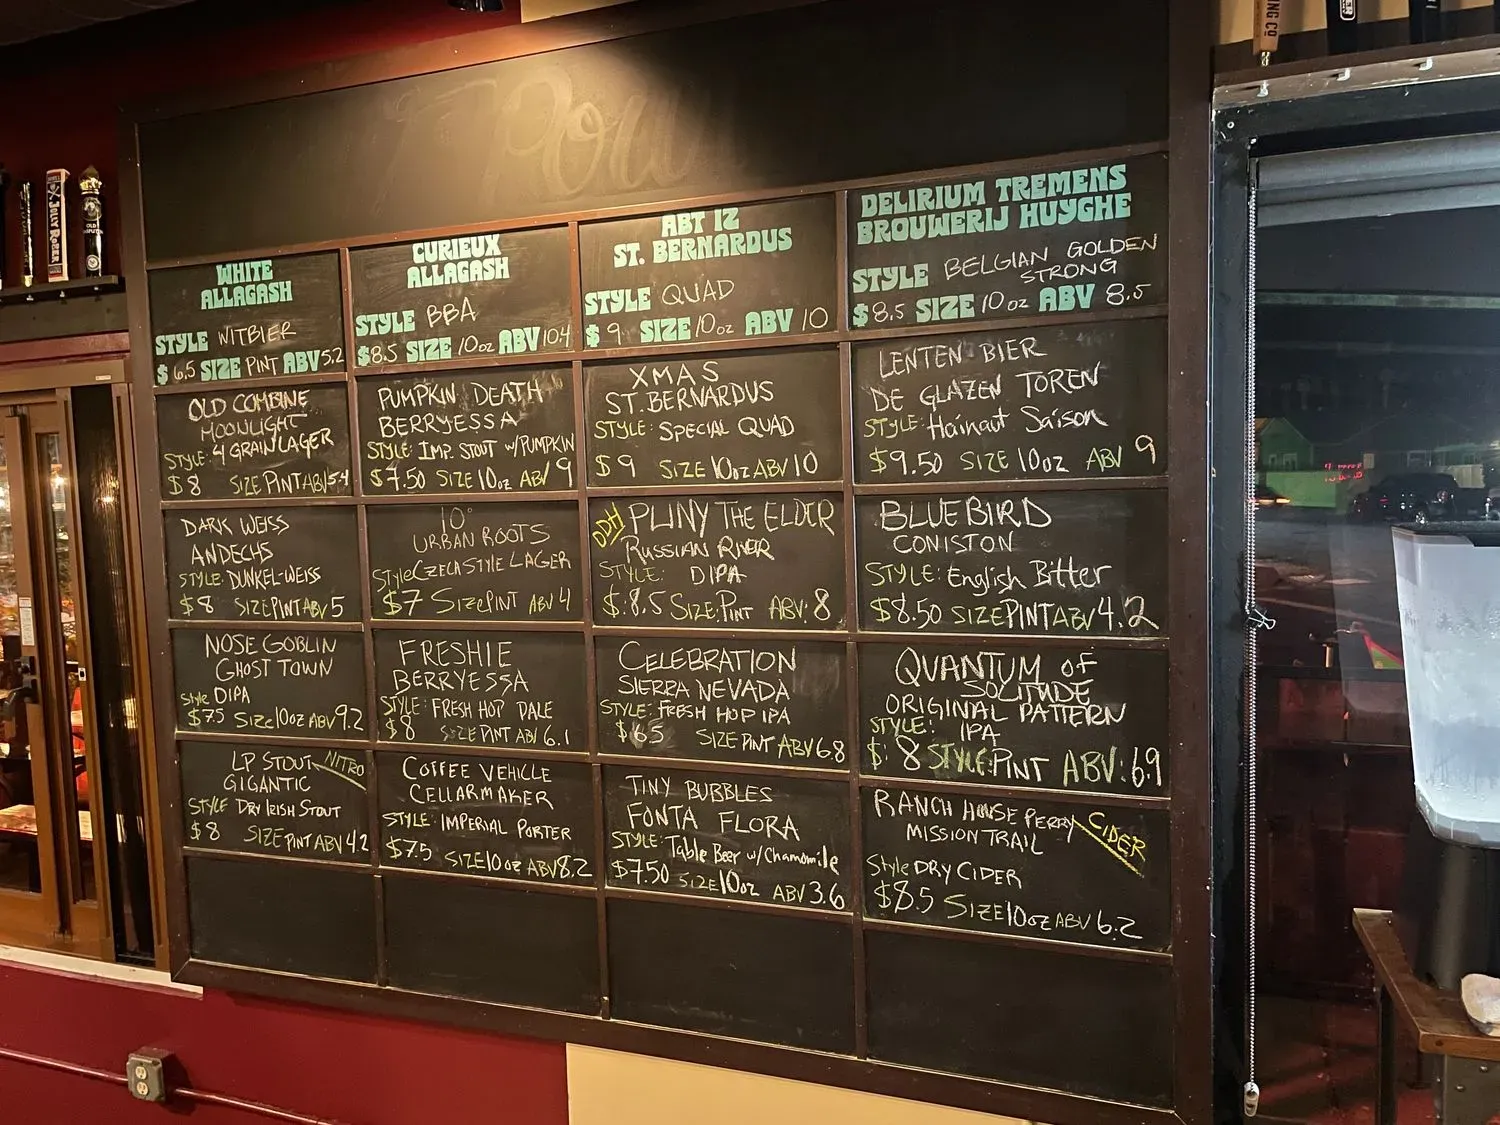 WHITE
ALLAGASH
STYLE WITBIER
$ 6.5 SIZE PINT ABV 5.2
CURIEUX
ALLAGASH
STYLE BBA
$8.5 SIZE 10oz ABV 10.4
ABT 12
ST. BERNARDUS
STYLE QUAD
$ 9 SIZE 10oz ABV 10
DELIRIUM TREMENS
BROUWERIJ HUYGHE
STYLE BELGIAN GOLDEN
STRONG
$8.5 SIZE 10oz ABV 8.5
OLD COMBINE
MOONLIGHT
STYLE: 4 GRAIN LAGER
$8 SIZE PINT ABV 5.4
PUMPKIN DEATH
BERRYESSA
STYLE: IMP. STOUT W/PUMPKIN
$7.50 SIZE 10oz ABV 9
XMAS
ST. BERNARDUS
STYLE: SPECIAL QUAD
$9 SIZE 10oz ABV 10
LENTEN BIER
DE GLAZEN TOREN
STYLE: Hainaut Saison
$9.50 SIZE 10oz ABV 9
DARK WEISS
ANDECHS
STYLE: DUNKEL-WEISS
$8 SIZE PINT ABV 5
10°
URBAN ROOTS
Style CZECH STYLE LAGER
$7 SIZE PINT ABV 4
DDH PLINY THE ELDER
RUSSIAN RIVER
STYLE: DIPA
$:8.5 SIZE: PINT ABV: 8
BLUEBIRD
CONISTON
STYLE: English Bitter
$8.50 SIZE PINT ABV 4.2
NOSE GOBLIN
GHOST TOWN
Style DIPA
$7.5 SIZE 10oz ABV 9.2
FRESHIE
BERRYESSA
STYLE: FRESH HOP PALE
$8 SIZE PINT ABV 6.1
CELEBRATION
SIERRA NEVADA
STYLE: FRESH HOP IPA
$6.5 SIZE PINT ABV 6.8
QUANTUM OF
SOLITUDE
ORIGINAL PATTERN
STYLE: IPA
$: 8 STYLE: PINT ABV: 6.9
LP STOUT NITRO
GIGANTIC
STYLE DRY IRISH STOUT
$8 SIZE PINT ABV 4.2
COFFEE VEHICLE
CELLARMAKER
STYLE: IMPERIAL PORTER
$7.5 SIZE 10oz ABV 8.2
TINY BUBBLES
FONTA FLORA
STYLE: Table Beer w/Chamomile
$7.50 SIZE 10oz ABV 3.6
RANCH HOUSE PERRY CIDER
MISSION TRAIL
Style DRY CIDER
$8.5 SIZE 10oz ABV 6.2
JOLLY ROGER
OLD